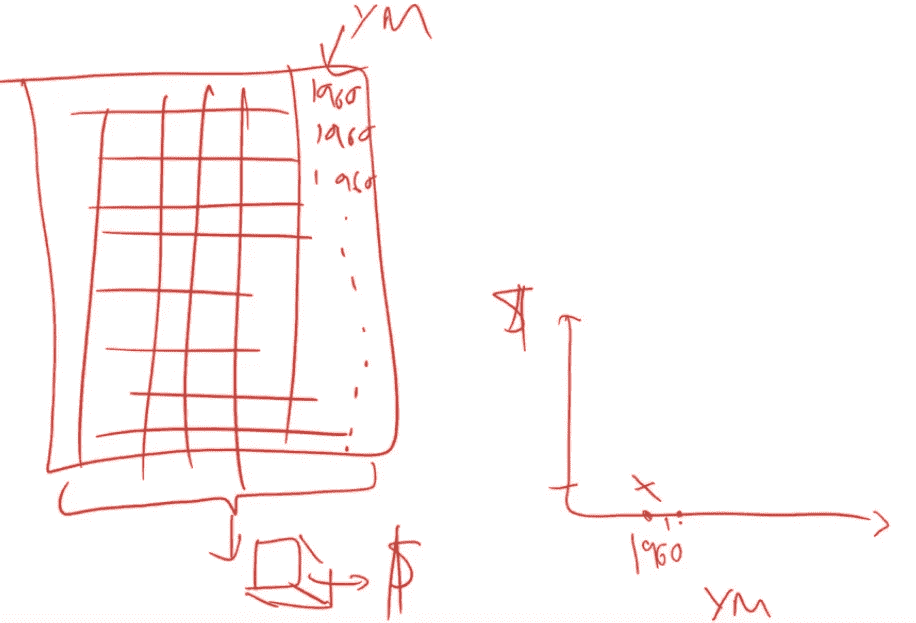 YM
1960
1960
1960
$
$
1960
YM